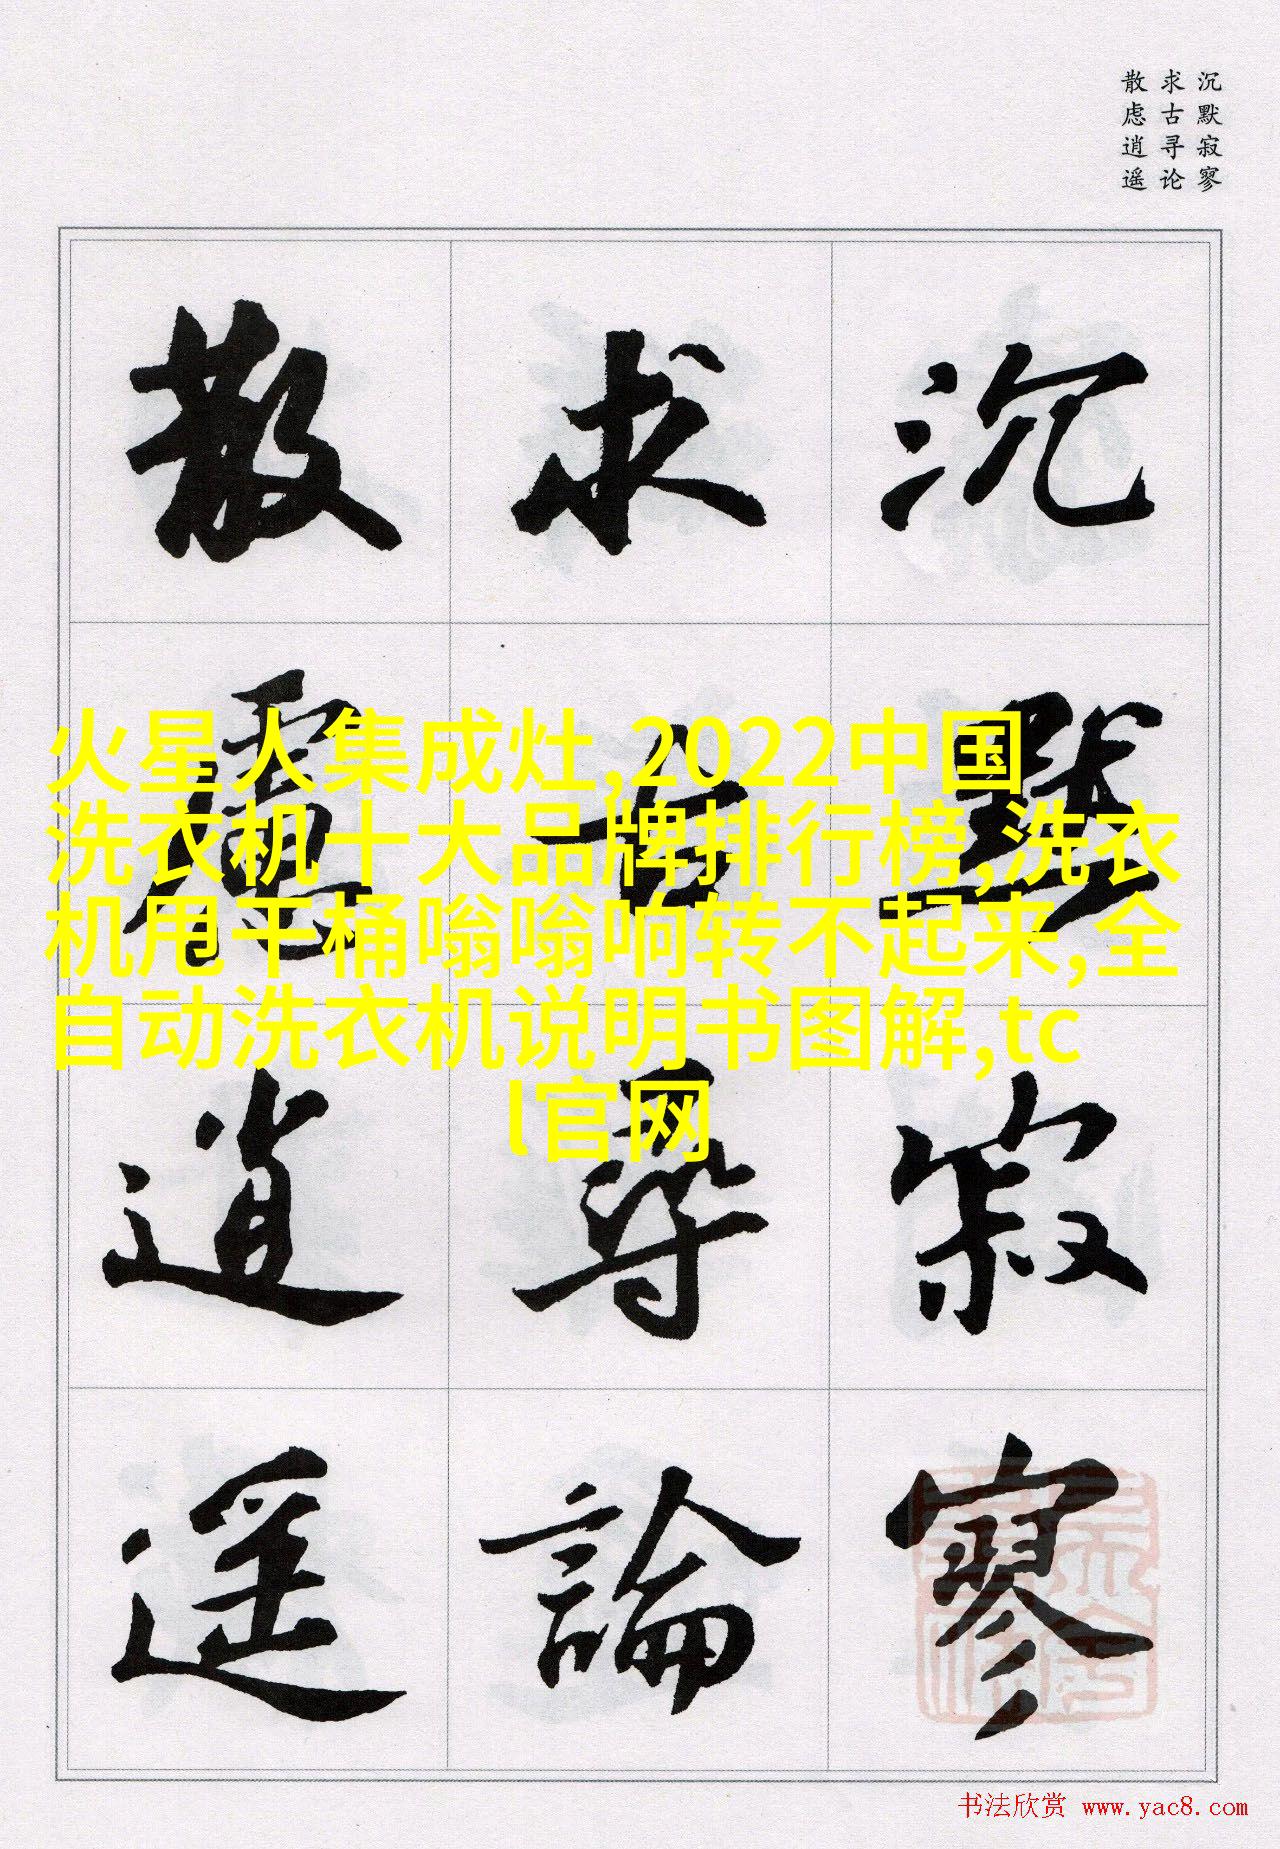 沉默寂寥
求古寻论
散虑逍遥
沉默寂寥
求古尋論
散慮逍遥
火星人集成灶,2022中国
洗衣机十大品牌排行榜,洗衣
机甩干桶嗡嗡响转不起来,全
自动洗衣机说明书图解,tc
l官网
书法欣赏 www.yac8.com